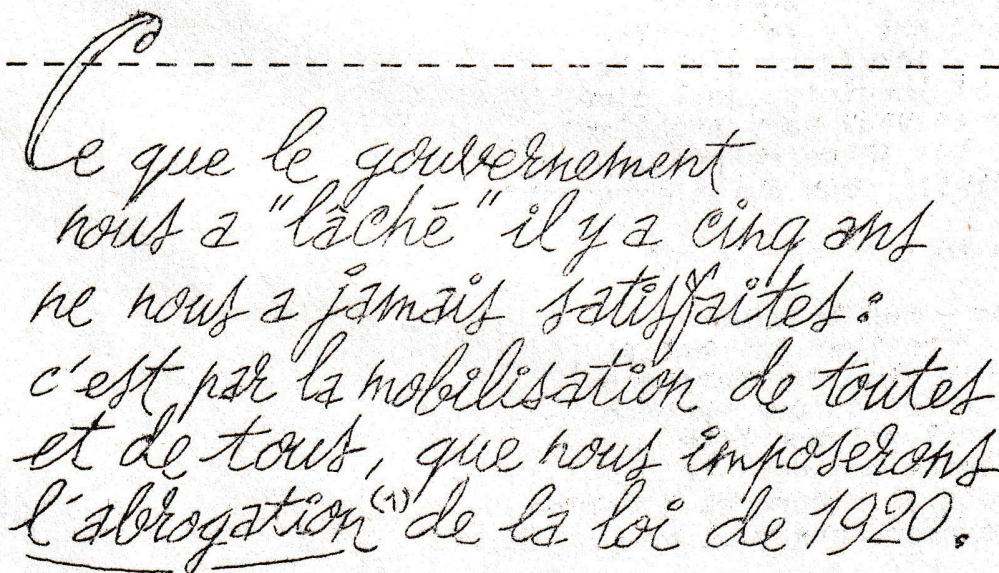 Ce que le gouvernement
nous a "lâché" il y a cinq ans
ne nous a jamais satisfaites :
c'est par la mobilisation de toutes
et de tous, que nous imposerons
l'abrogation(1) de la loi de 1920.